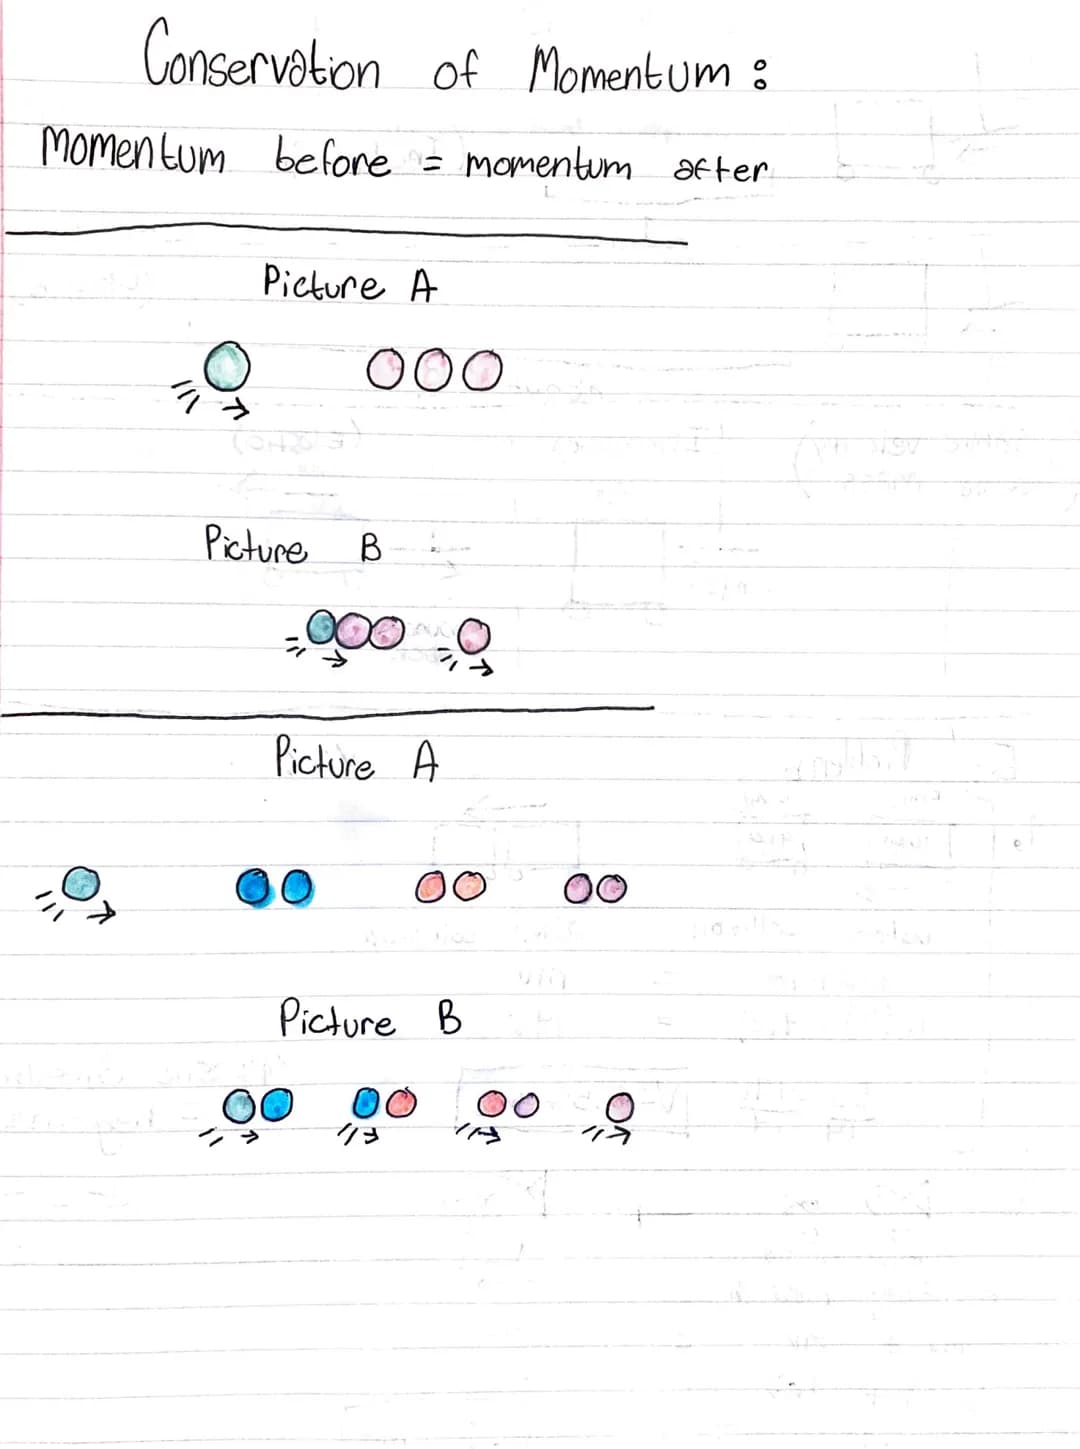 Conservation of Momentum :
Momentum before = momentum after
Picture A
Picture B
Picture A
Picture B